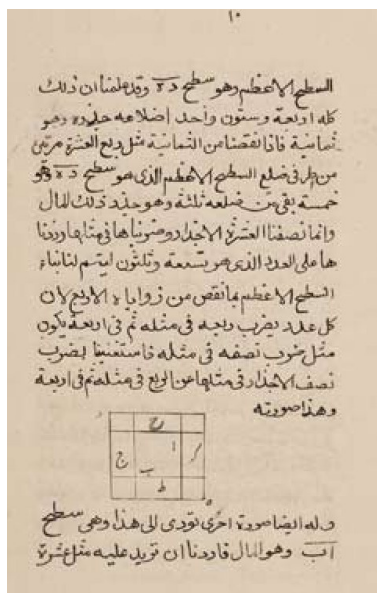 ١٠
السطح الاعظم وهو سطح د ه وقد علمنا ان ذلك
كله اربعة وستون واحد اضلاعه جذره وهو
ثمانية فاذا نقصنا من الثمانية مثل ربع العشرة مرتين
من طرفى ضلع السطح الاعظم الذى هو سطح د ه وهو
خمسة بقى من ضلعه ثلثة وهو جذر ذلك المال
وانما نصفنا العشرة الاجذار وضربناها فى مثلها وزدنا
ها على العدد الذى هو تسعة وثلثون ليتم لنا بناء
السطح الاعظم بما نقص من زواياه الاربع لان
كل عدد يضرب ربعه فى مثله ثم فى اربعة يكون
مثل ضرب نصفه فى مثله فاستغنينا بضرب
نصف الاجذار فى مثلها عن الربع فى مثله ثم فى اربعة
وهذا صورته
ح
ا
ج
ب
ط
ه
وله ايضا صورة اخرى تودى الى هذا وهى سطح
اب وهو المال فاردنا ان نزيد عليه مثل عشرة